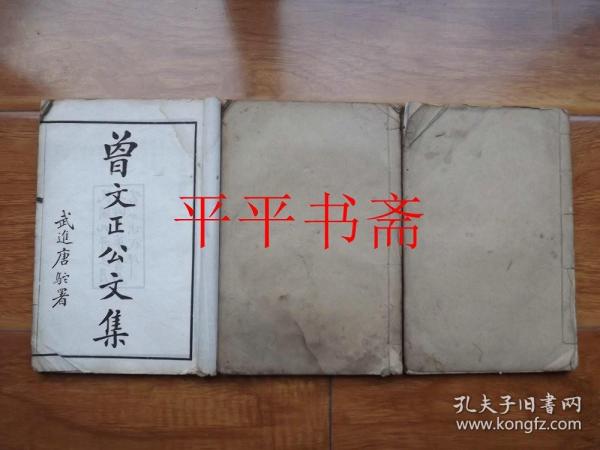 曾文正公文集
武進唐駝署
平平书斋
孔夫子旧书网
www.kongfz.com